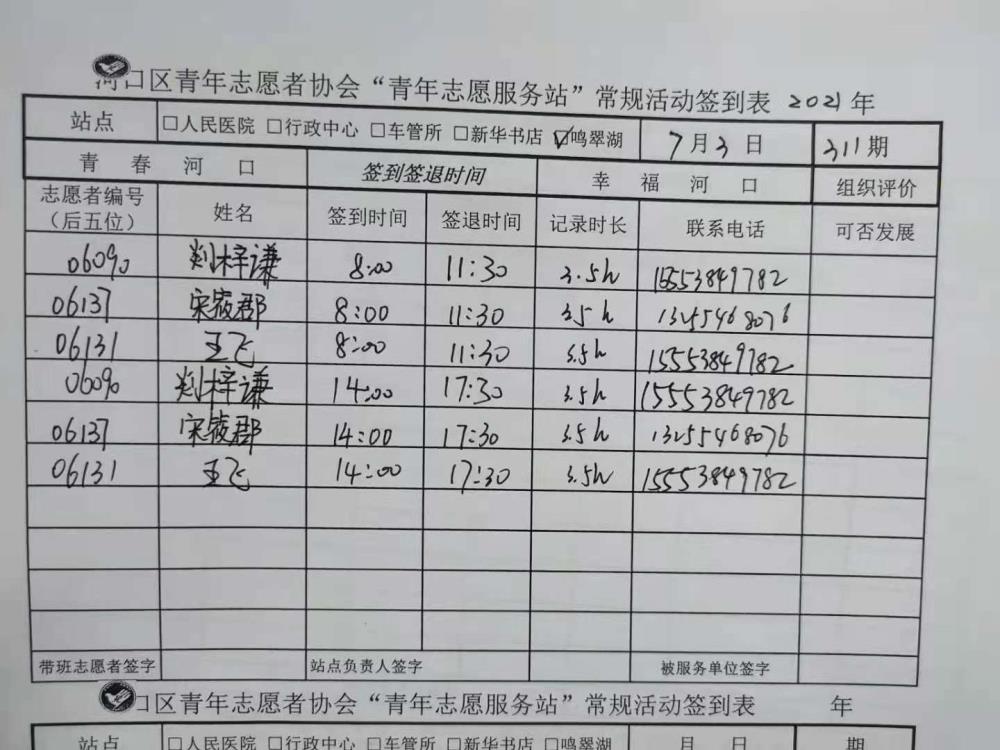 河口区青年志愿者协会“青年志愿服务站”常规活动签到表 2021年
站点 □人民医院 □行政中心 □车管所 □新华书店 ☑鸣翠湖 7月3日 311期
青春河口 签到签退时间 幸福河口 组织评价
志愿者编号（后五位） 姓名 签到时间 签退时间 记录时长 联系电话 可否发展
06090 刘梓谦 8:00 11:30 3.5h 15553849782
06137 宋筱郡 8:00 11:30 3.5h 13255468076
06131 王飞 8:00 11:30 3.5h 15553849782
06090 刘梓谦 14:00 17:30 3.5h 15553849782
06137 宋筱郡 14:00 17:30 3.5h 13255468076
06131 王飞 14:00 17:30 3.5h 15553849782
带班志愿者签字 站点负责人签字 被服务单位签字
口区青年志愿者协会“青年志愿服务站”常规活动签到表 年
站点 □人民医院 □行政中心 □车管所 □新华书店 □鸣翠湖 月 日 期